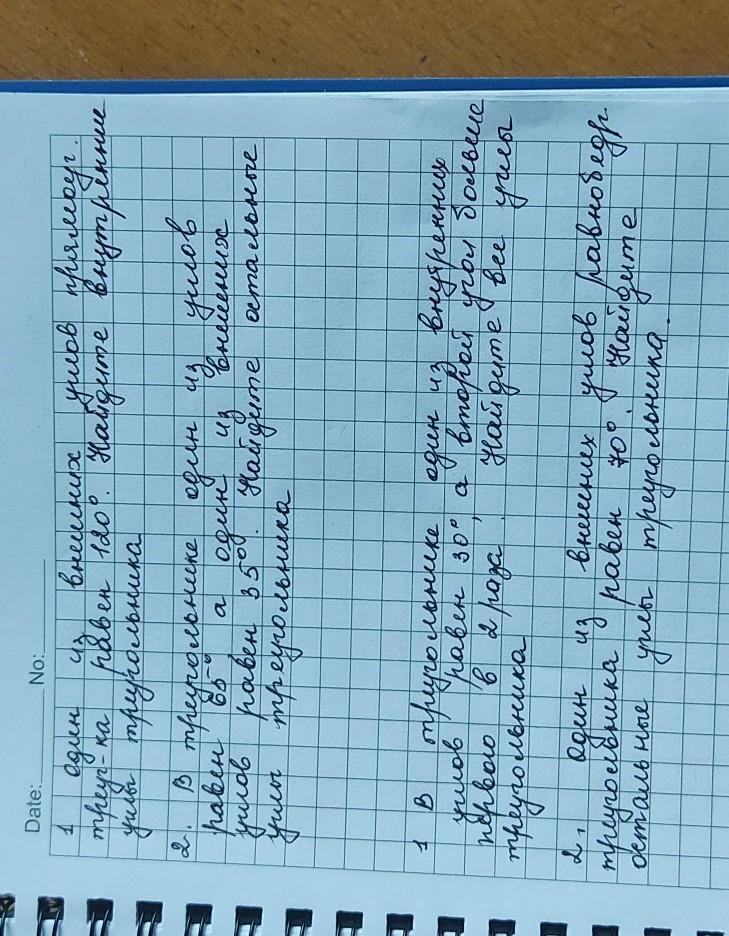 Date: No:
1 один из внешних углов прямоуг.
треуг-ка равен 120°. Найдите внутренние
углы треугольника
2. В треугольнике один из углов
равен 65° а один из внешних
углов равен 35°. Найдите остальные
углы треугольника
1 В треугольнике один из внутренних
углов равен 30°, а второй угол больше
первого в 2 раза. Найдите все углы
треугольника
2. один из внешних углов равнобедр.
треугольника равен 70°. Найдите
остальные углы треугольника.